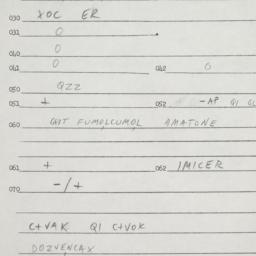 030 XOC ER
031 0
040 0
041 0 042 0
050 QZZ
051 + 052 -AP QI
060 QHT FUMOLCUMOL AMATONE
061 + 062 IMICER
070 -/+
C+VAK QI C+VOK
DOZVENCAX